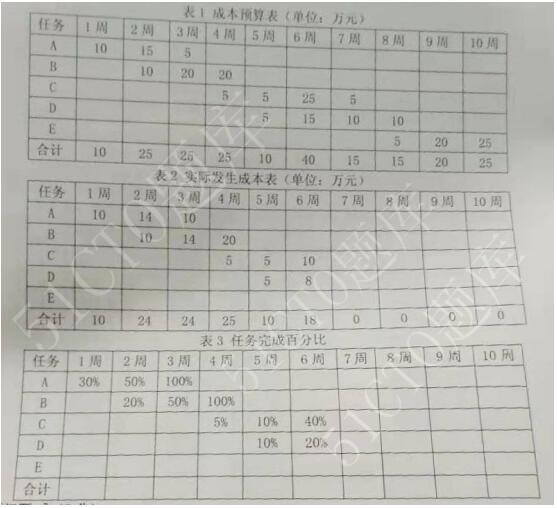 表1 成本预算表（单位：万元）
任务 1周 2周 3周 4周 5周 6周 7周 8周 9周 10周
A 10 15 5
B 10 20 20
C 5 5 25 5
D 5 15 10 10
E 5 20 25
合计 10 25 25 25 10 40 15 15 20 25
表2 实际发生成本表（单位：万元）
任务 1周 2周 3周 4周 5周 6周 7周 8周 9周 10周
A 10 14 10
B 10 14 20
C 5 5 10
D 5 8
E
合计 10 24 24 25 10 18 0 0 0 0
表3 任务完成百分比
任务 1周 2周 3周 4周 5周 6周 7周 8周 9周 10周
A 30% 50% 100%
B 20% 50% 100%
C 5% 10% 40%
D 10% 20%
E
合计
51CTO题库
51CTO题库